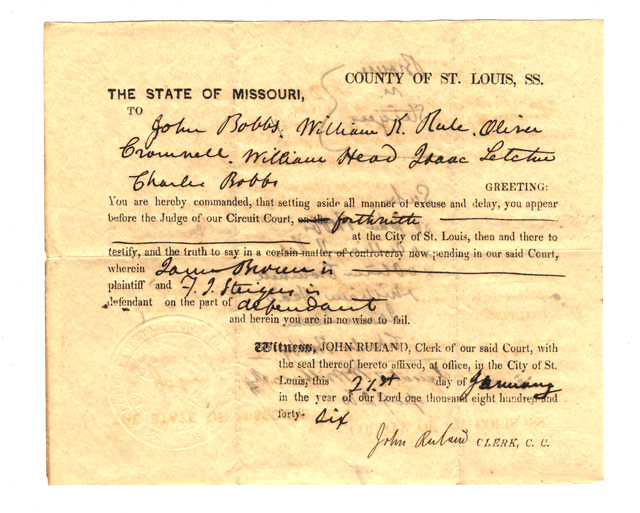 COUNTY OF ST. LOUIS, SS.
THE STATE OF MISSOURI,
TO
John Bobbs. William K. Rule. Oliver
Cromwell. William Head Isaac Letcher
Charles Bobbs
GREETING:
You are hereby commanded, that setting aside all manner of excuse and delay, you appear
before the Judge of our Circuit Court, on the forthwith
at the City of St. Louis, then and there to
testify, and the truth to say in a certain matter of controversy now pending in our said Court,
wherein James Brown is
plaintiff and is
defendant on the part of defendant
and herein you are in no wise to fail.
Witness, JOHN RULAND, Clerk of our said Court, with
the seal thereof hereto affixed, at office, in the City of St.
Louis, this 21st day of January
in the year of our Lord one thousand eight hundred and
forty-six
John Ruland CLERK, C. C.